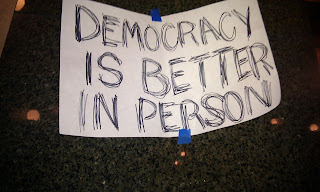 DEMOCRACY
IS BETTER
IN PERSON